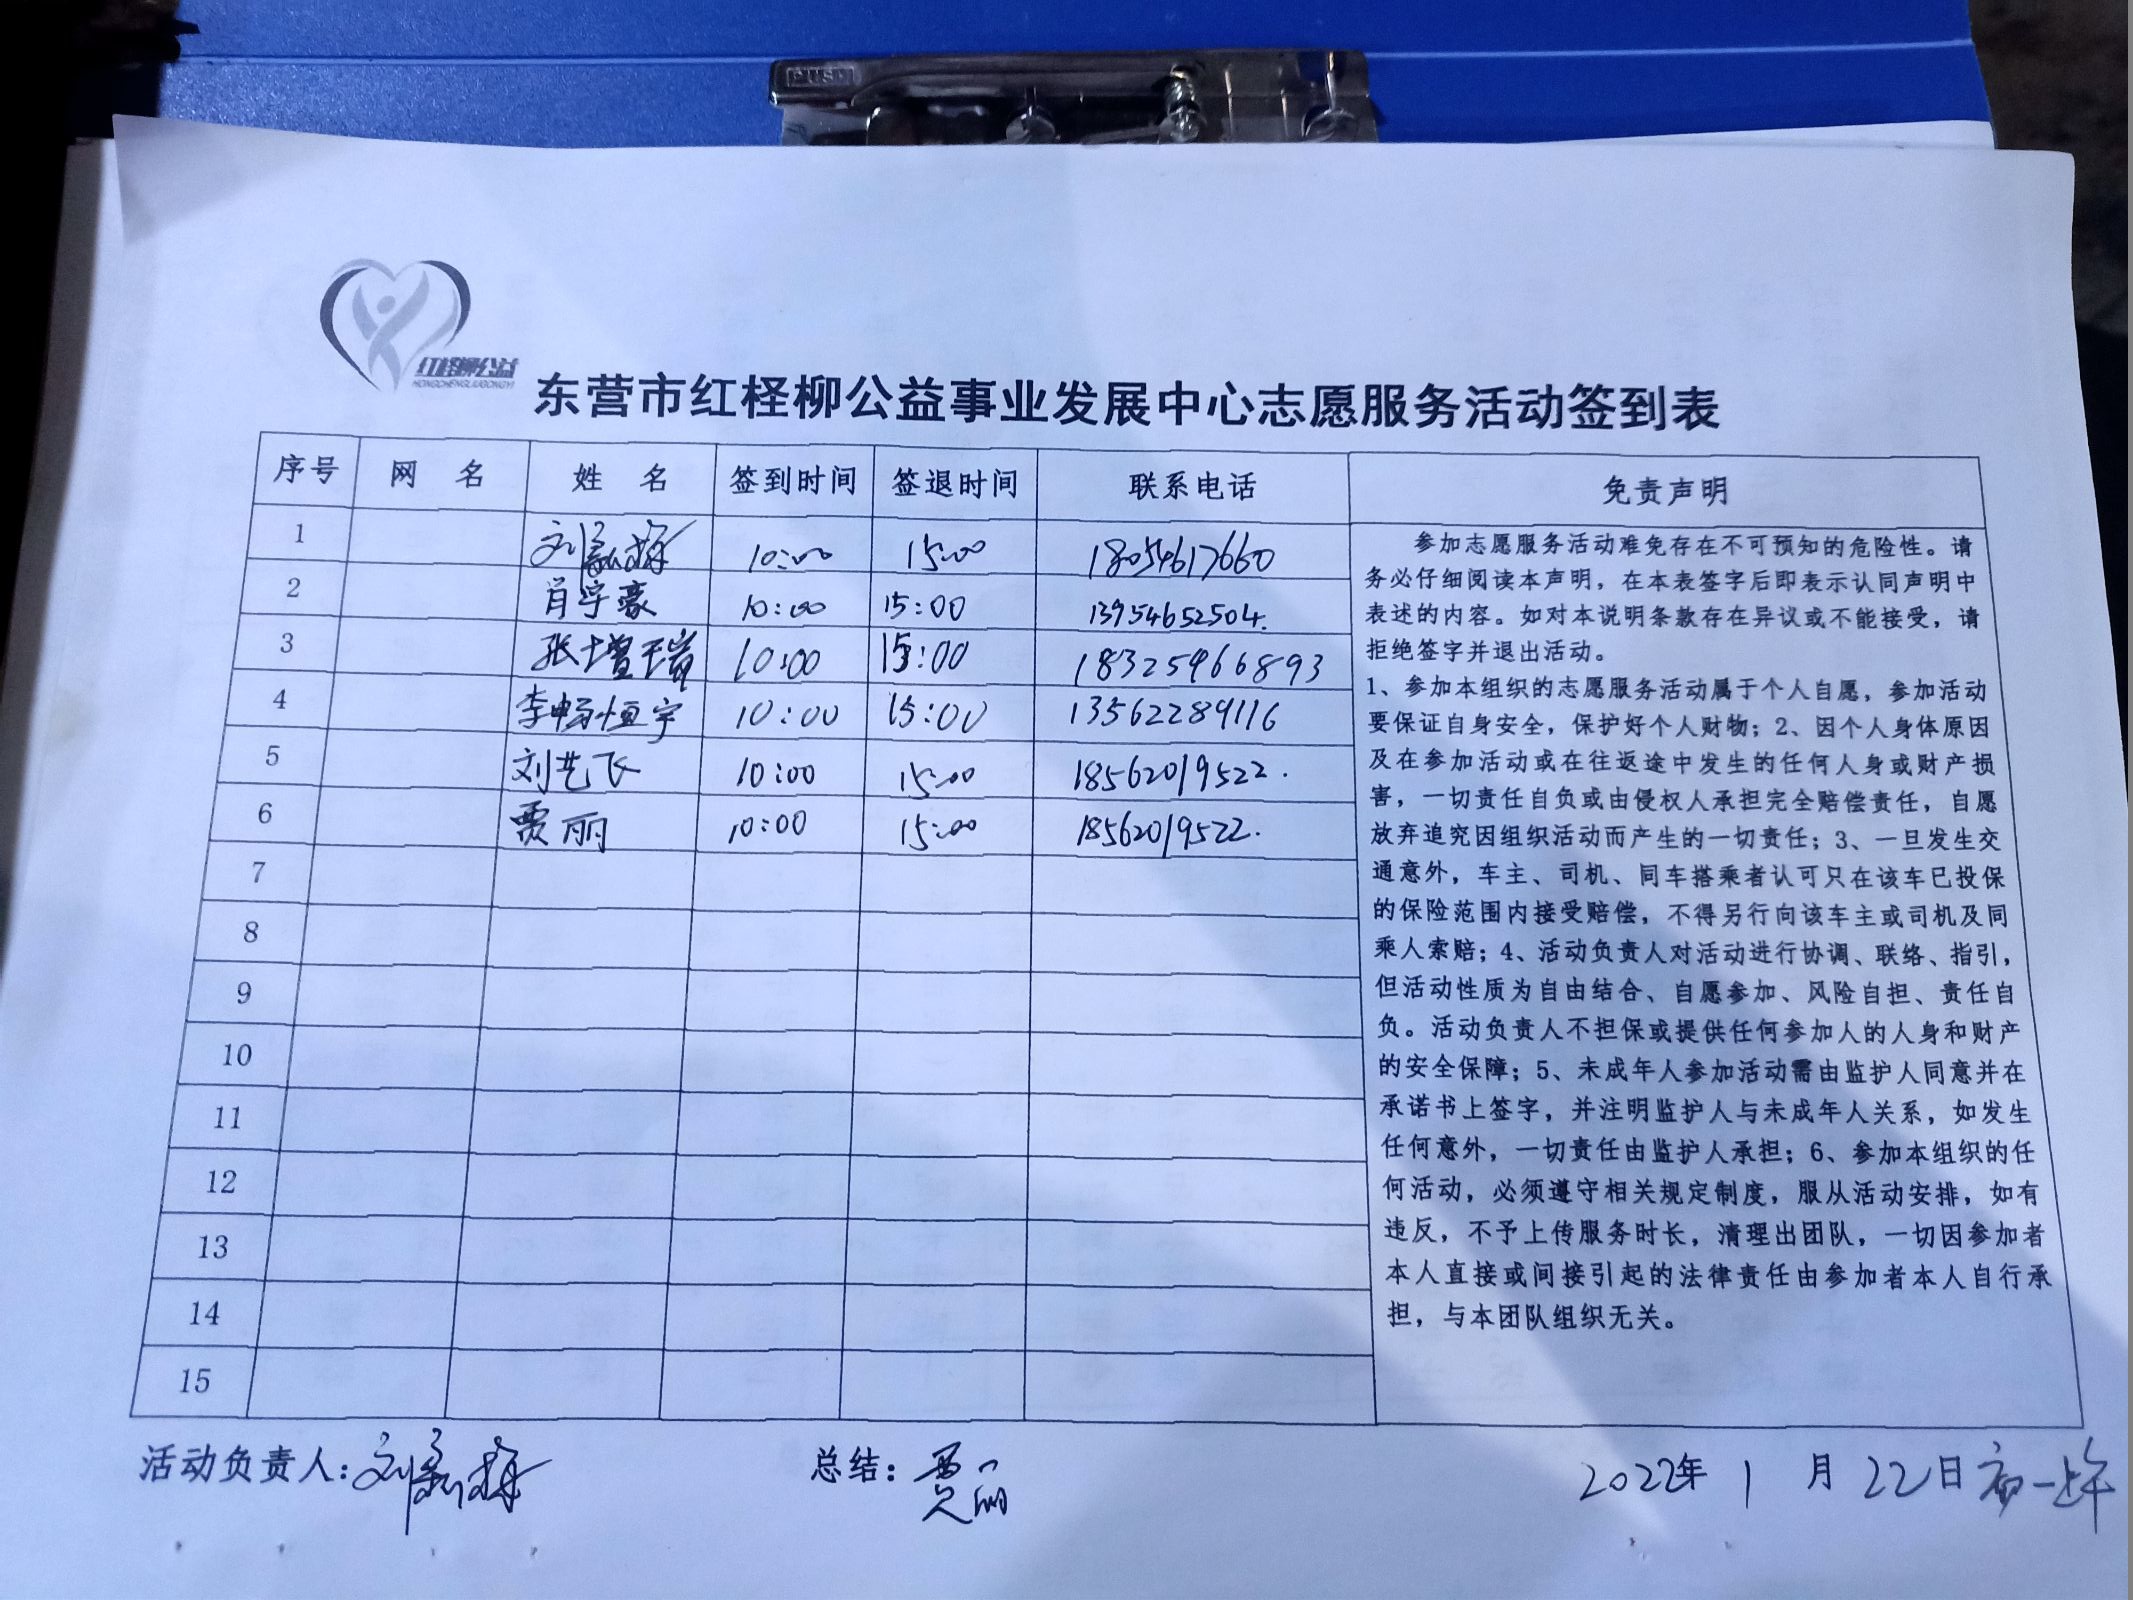 PUSH
红柽柳公益
HONGCHENGLIUGONGYI
东营市红柽柳公益事业发展中心志愿服务活动签到表
序号 网 名 姓 名 签到时间 签退时间 联系电话 免责声明
1 刘 10:00 15:00 18054617660
2 肖宇豪 10:00 15:00 13954652504.
3 张增瑞 10:00 15:00 18325466893
4 李畅恒宇 10:00 15:00 13562289116
5 刘艺飞 10:00 15:00 18562019522.
6 贾丽 10:00 15:00 18562019522.
7
8
9
10
11
12
13
14
15
参加志愿服务活动难免存在不可预知的危险性。请
务必仔细阅读本声明，在本表签字后即表示认同声明中
表述的内容。如对本说明条款存在异议或不能接受，请
拒绝签字并退出活动。
1、参加本组织的志愿服务活动属于个人自愿，参加活动
要保证自身安全，保护好个人财物；2、因个人身体原因
及在参加活动或在往返途中发生的任何人身或财产损
害，一切责任自负或由侵权人承担完全赔偿责任，自愿
放弃追究因组织活动而产生的一切责任；3、一旦发生交
通意外，车主、司机、同车搭乘者认可只在该车已投保
的保险范围内接受赔偿，不得另行向该车主或司机及同
乘人索赔；4、活动负责人对活动进行协调、联络、指引，
但活动性质为自由结合、自愿参加、风险自担、责任自
负。活动负责人不担保或提供任何参加人的人身和财产
的安全保障；5、未成年人参加活动需由监护人同意并在
承诺书上签字，并注明监护人与未成年人关系，如发生
任何意外，一切责任由监护人承担；6、参加本组织的任
何活动，必须遵守相关规定制度，服从活动安排，如有
违反，不予上传服务时长，清理出团队，一切因参加者
本人直接或间接引起的法律责任由参加者本人自行承
担，与本团队组织无关。
活动负责人：刘 总结：贾丽 2022年 1 月 22日